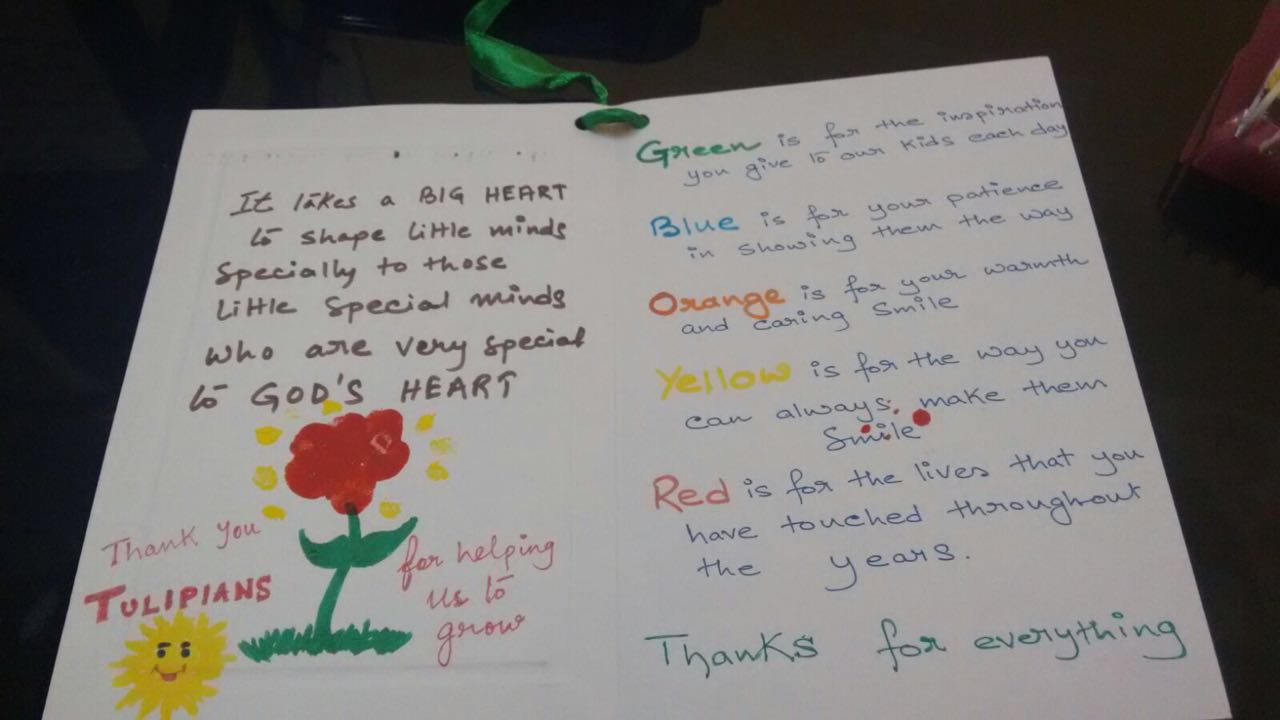 It takes a BIG HEART
to shape little minds
Specially to those
Little Special minds
who are very special
to GOD'S HEART
Thank you
TULIPIANS
for helping
us to
grow
Green is for the inspiration
you give to our kids each day
Blue is for your patience
in showing them the way
Orange is for your warmth
and caring Smile
Yellow is for the way you
can always make them
Smile
Red is for the lives that you
have touched throughout
the years.
Thanks for everything